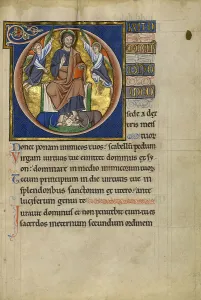 sede a dex
tris meis
tuor
Donec ponam inimicos tuos: scabellum pedum
Virgam virtutis tue emittet dominus ex sy
on: dominare in medio inimicorum tuorum
Tecum principium in die virtutis tue in
splendoribus sanctorum ex utero ante
luciferum genui te
Iuravit dominus et non penitebit eum tu es
sacerdos ineternum secundum ordinem